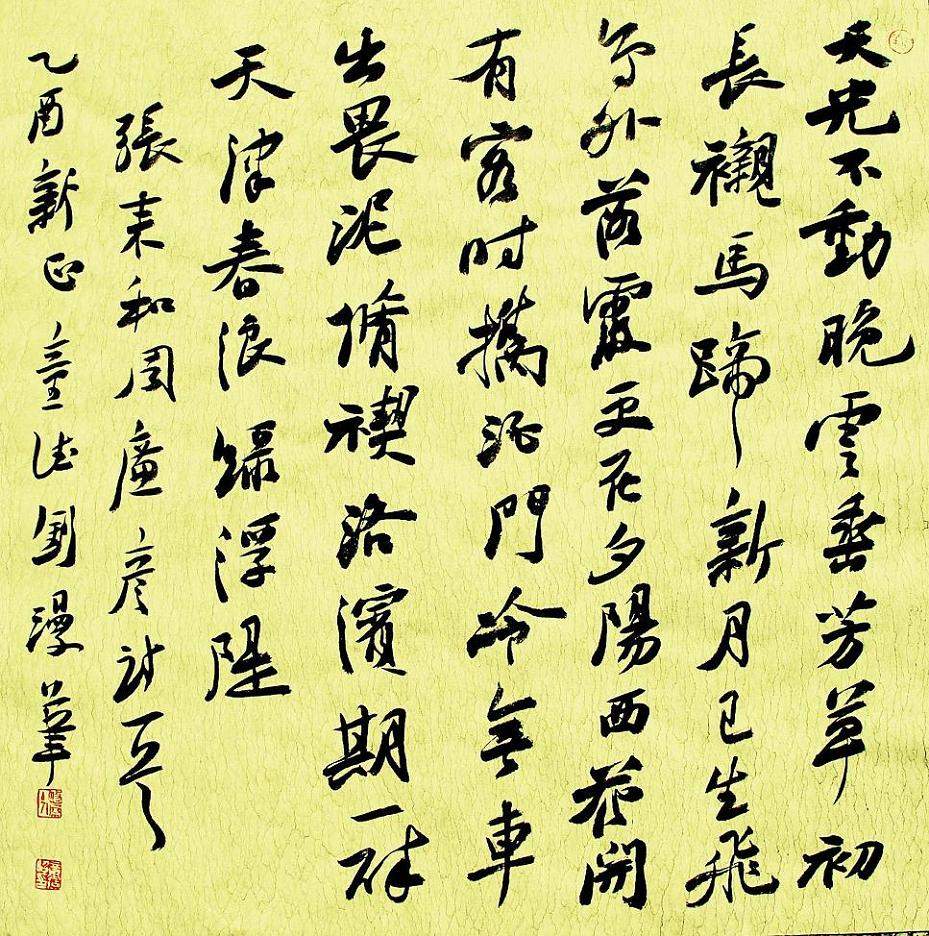 天光不動晚雲垂芳草初
長襯馬蹄新月已生飛
鳥外落霞更在夕陽西花開
有客时攜酒門冷無車
出畏泥脩禊洛濱期一醉
天津春浪綠浮堤
張耒和周廉彦詩
乙酉新正 漫筆